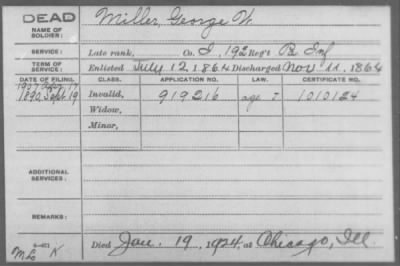 DEAD
NAME OF SOLDIER: Miller, George W.
SERVICE: Late rank, Co. I, 192 Reg't Pa Inf
TERM OF SERVICE: Enlisted July 12, 1864 Discharged Nov 11, 1864
DATE OF FILING. CLASS. APPLICATION NO. LAW. CERTIFICATE NO.
1907 17
1890, Sept 19 Invalid, 919216 age 1010124
Widow,
Minor,
ADDITIONAL SERVICES:
REMARKS:
Died Jan. 19, 1924, at Chicago, Ill.
K